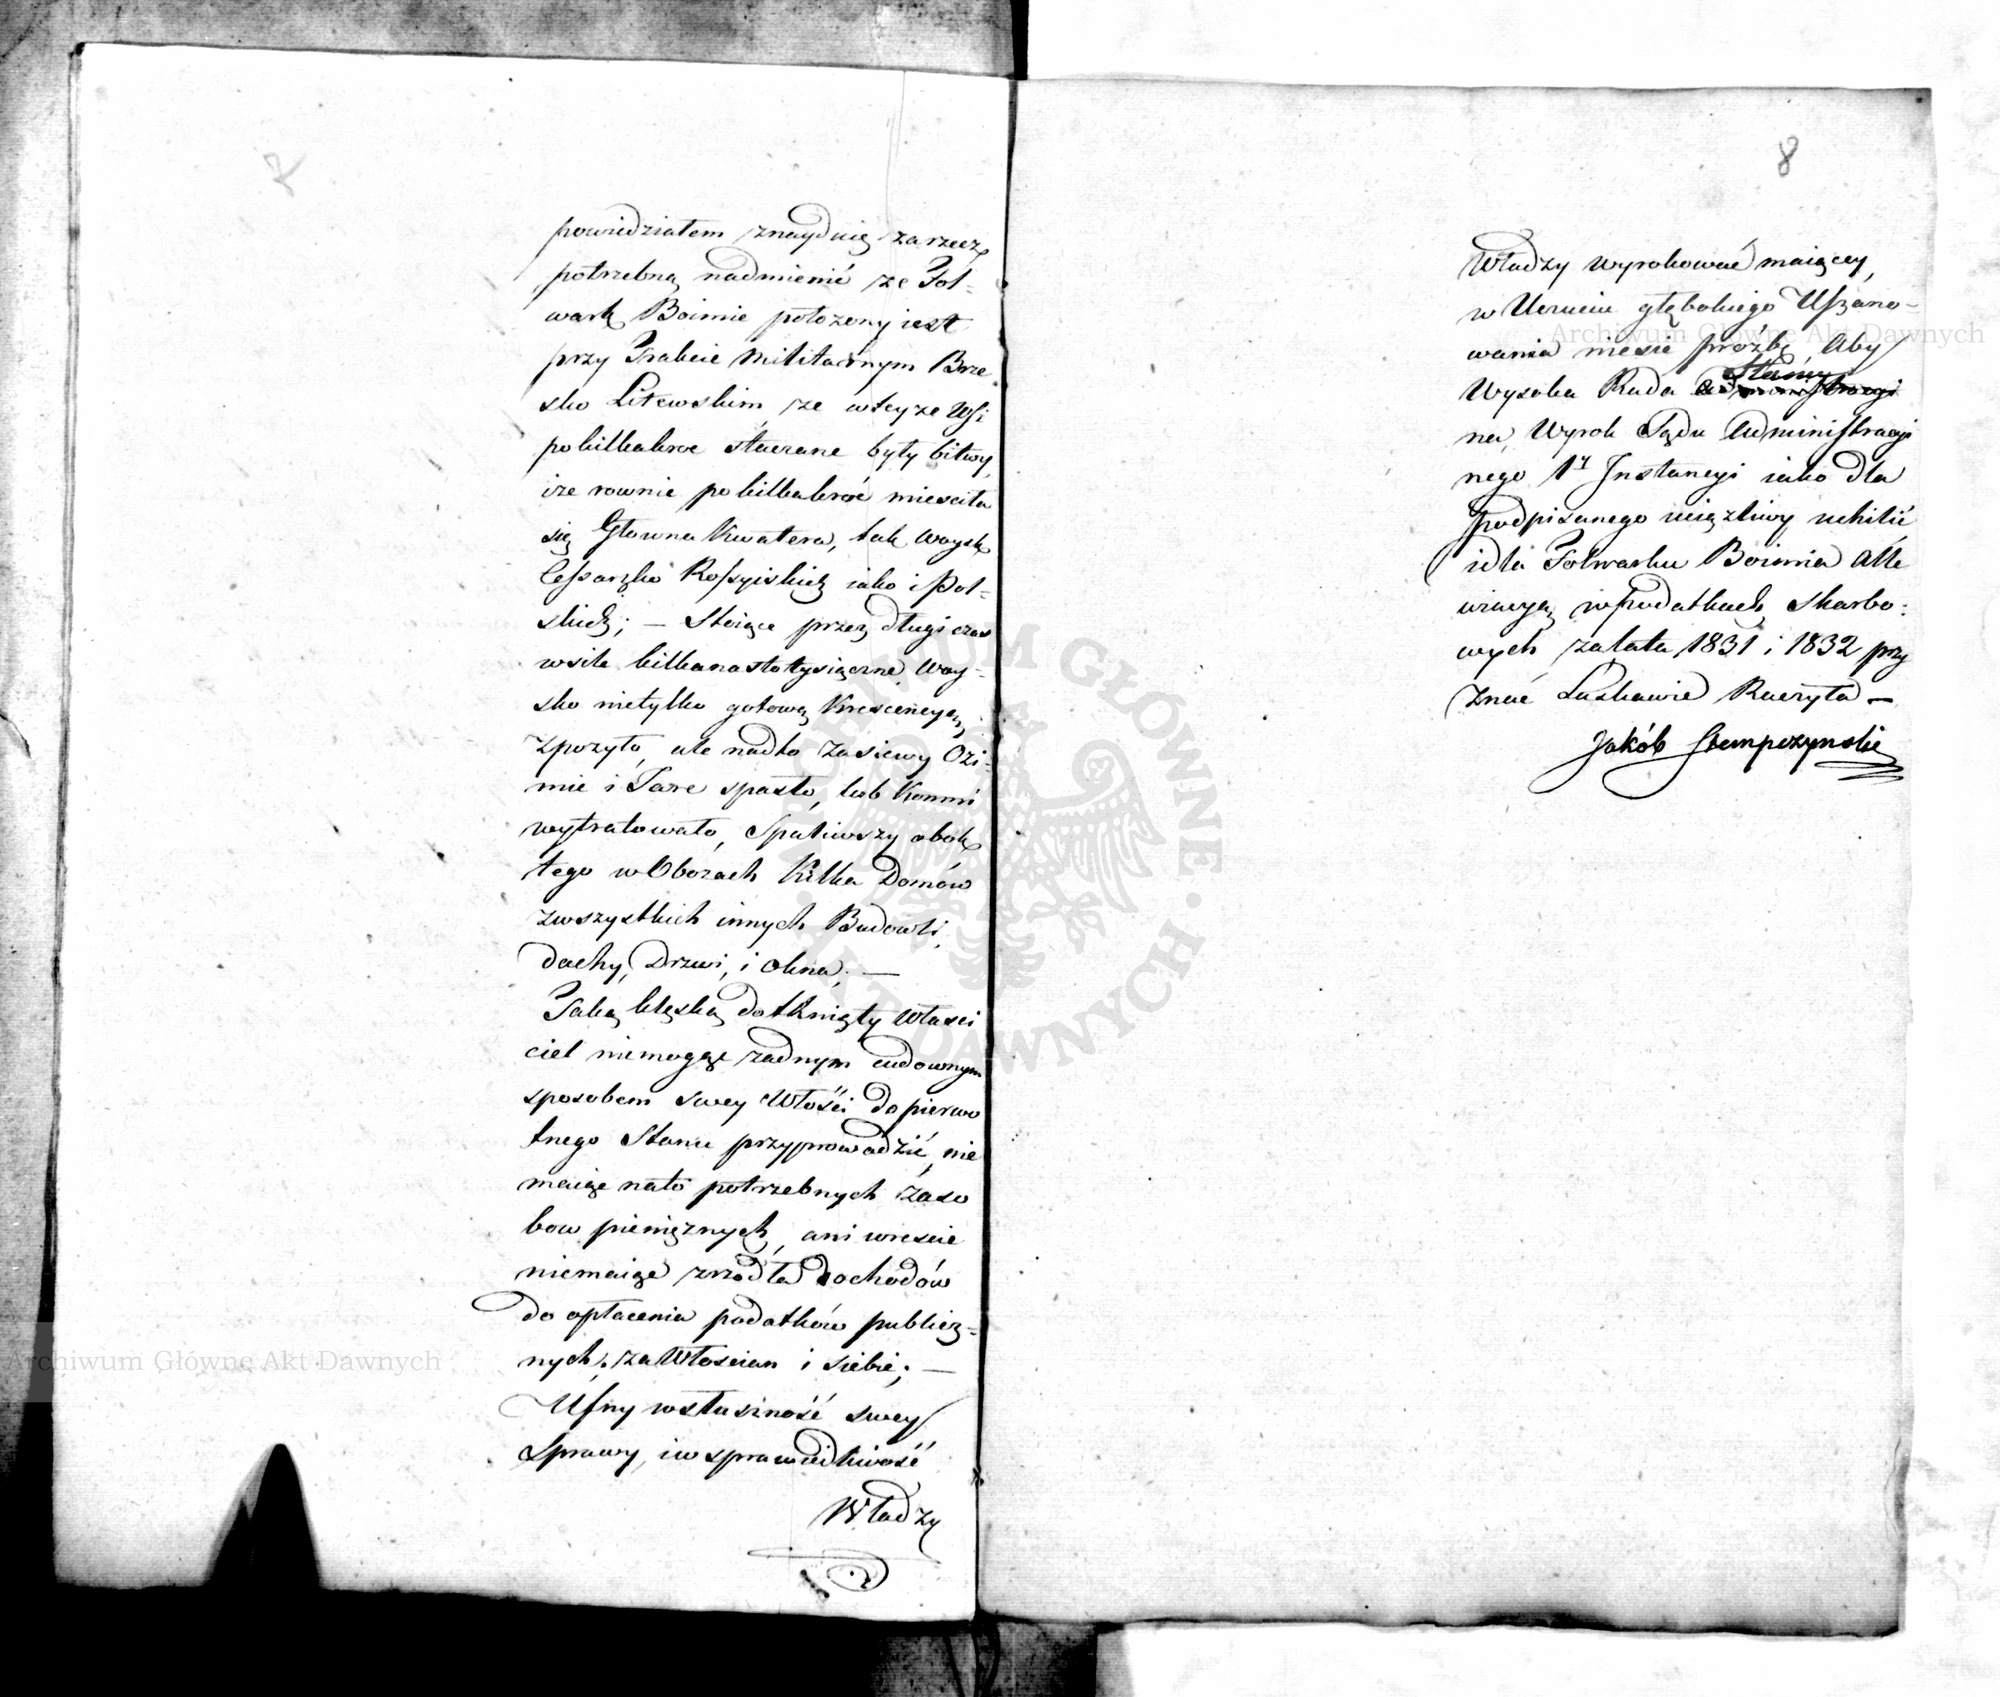 powiedziałem znayduię za rzecz
potrzebną nadmienić ze Fol-
wark Boimie położony iest
przy Trakcie Militarnym Brze
sko Litewskim, ze w teyze Wsi
po kilkakroć staczane były bitwy
i ze rownie po kilkakroć miesciła
się Głowna Kwatera, tak Woysk
Cessarsko Rossyiskich iako i Pol-
skich; — Stoiące przez długi czas
w sile kilkanastotysięczne Woy-
sko nietylko gotową Krescencyą
zpozyło, ale nadto zasiewy Ozi-
mie i Jare spasło, lub Konmi
wytratowało, Spaliwszy obok
tego w Obozach Kilka Domów
z wszystkich innych Budowli,
dachy, Drzwi, i okna; —
Taką klęską dotknięty Własci
ciel niemogąc zadnym cudownym
sposobem swey Włości do pierwo
tnego Stanu przyprowadzić, nie
maiąc na to potrzebnych zaso
bow pienięznych, ani wrescie
niemaiąc zrzódła dochodów
do opłacenia podatków publicz-
nych, za Włoscian i siebie; —
Ufny w słuszność swey
Sprawy, i w sprawiedliwość
Władzy
8
Władzy wyrokować maiącey,
w Uczuciu głębokiego Uszano-
wania niesie prozbę, Aby
Wysoka Rada Stanu
na Wyrok Sądu Administracyi
nego 1y Instancyi iako dla
podpisanego uciązliwy uchilić
i dla Folwarku Boimia Alle
wiacyą w podatkach Skarbo:
wych za lata 1831 i 1832 przy
znać Łaskawie Raczyła —
Jakób Stempczynski
Archiwum Główne Akt Dawnych
Archiwum Główne Akt Dawnych
ARCHIWUM GŁÓWNE AKT DAWNYCH